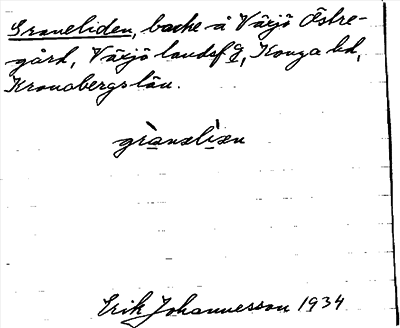 Graneliden, backe å Växjö Östre-
gård, Växjö landsf g, Konga hd,
Kronobergs län.
grànəlìən
Erik Johannesson 1934